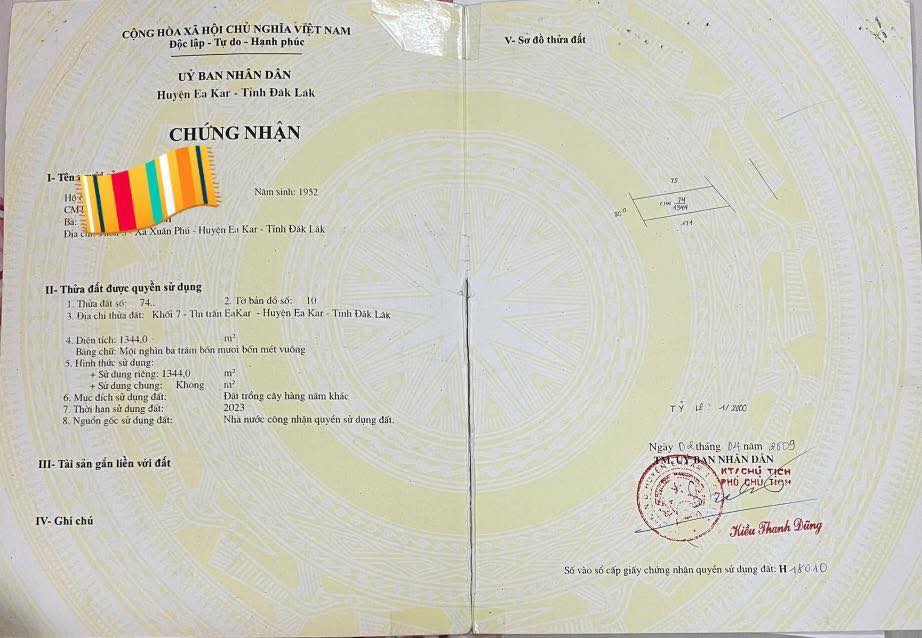 CỘNG HÒA XÃ HỘI CHỦ NGHĨA VIỆT NAM
Độc lập - Tự do - Hạnh phúc
UỶ BAN NHÂN DÂN
Huyện Ea Kar - Tỉnh Đăk Lăk
CHỨNG NHẬN
I- Tên
Hộ
Năm sinh: 1952
CM
Bà:
Địa - Xã Xuân Phú - Huyện Ea Kar - Tỉnh Đăk Lăk
II- Thửa đất được quyền sử dụng
1. Thửa đất số: 74.. 2. Tờ bản đồ số: 10
3. Địa chỉ thửa đất: Khối 7 - Thị trấn EaKar - Huyện Ea Kar - Tỉnh Đăk Lăk
4. Diện tích: 1344,0 m²
Bằng chữ: Một nghìn ba trăm bốn mươi bốn mét vuông
5. Hình thức sử dụng:
+ Sử dụng riêng: 1344,0 m²
+ Sử dụng chung: Không m²
6. Mục đích sử dụng đất: Đất trồng cây hàng năm khác
7. Thời hạn sử dụng đất: 2023
8. Nguồn gốc sử dụng đất: Nhà nước công nhận quyền sử dụng đất.
III- Tài sản gắn liền với đất
IV- Ghi chú
V- Sơ đồ thửa đất
75
74
1344
171
TỶ LỆ: 1/2000
Ngày 02 tháng 04 năm 2009
TM. UỶ BAN NHÂN DÂN
KT/CHỦ TỊCH
PHÓ CHỦ TỊCH
Kiều Thanh Dũng
Số vào sổ cấp giấy chứng nhận quyền sử dụng đất: H 18010